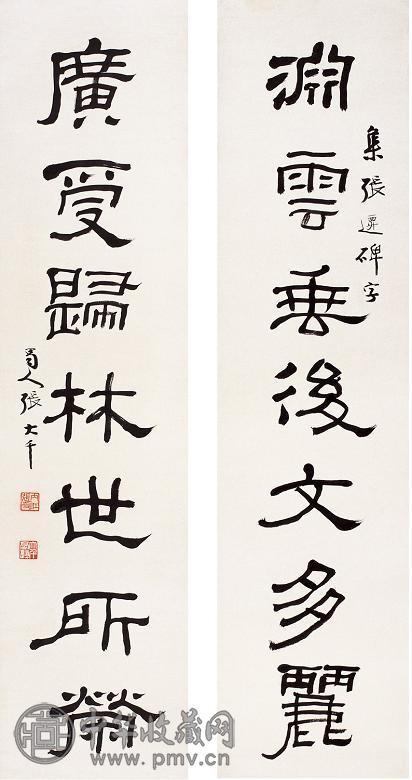 淵雲垂後文多麗
集張遷碑字
廣受歸林世所榮
蜀人張大千
中华收藏网
www.pmv.cn